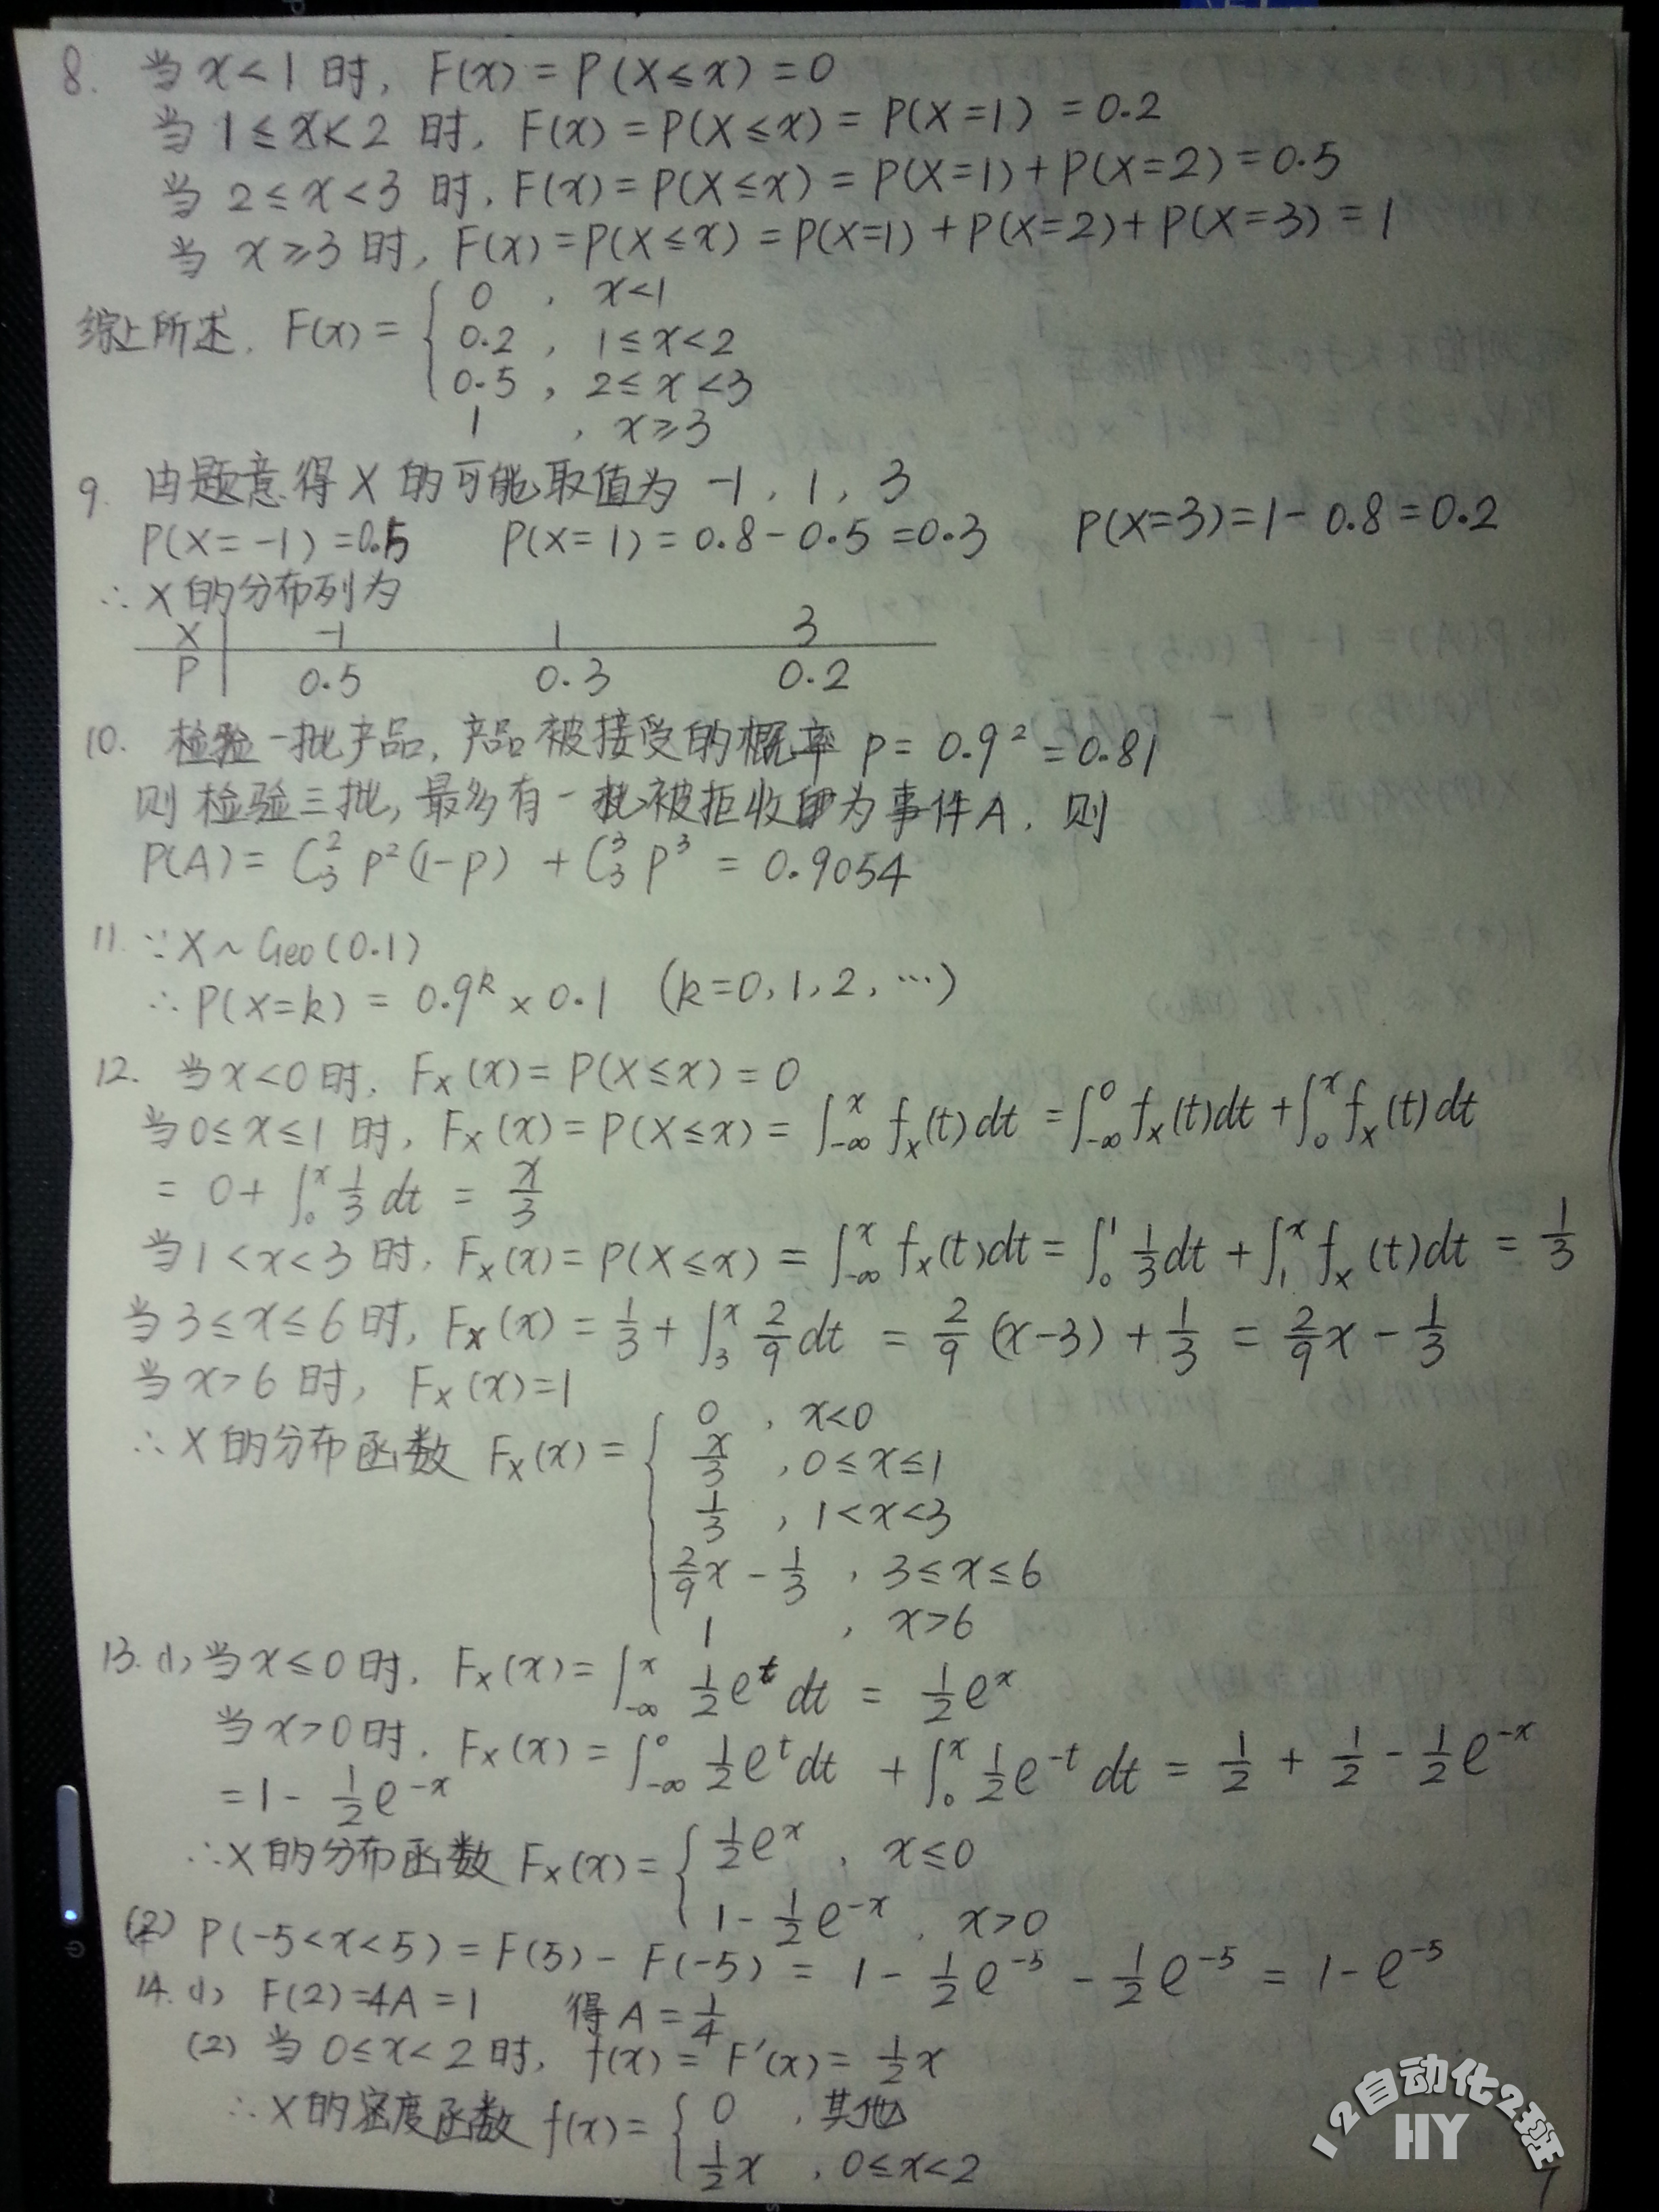 8. 当 x<1 时, F(x) = P(X≤x) = 0
当 1≤x<2 时, F(x) = P(X≤x) = P(X=1) = 0.2
当 2≤x<3 时, F(x) = P(X≤x) = P(X=1)+P(X=2) = 0.5
当 x≥3 时, F(x) = P(X≤x) = P(X=1)+P(X=2)+P(X=3) = 1
综上所述, F(x) = { 0 , x<1
0.2 , 1≤x<2
0.5 , 2≤x<3
1 , x≥3
9. 由题意得 X 的可能取值为 -1, 1, 3
P(X=-1)=0.5 P(X=1)=0.8-0.5=0.3 P(X=3)=1-0.8=0.2
∴X的分布列为
X | -1 1 3
P | 0.5 0.3 0.2
10. 检验一批产品, 产品被接受的概率 p = 0.9² = 0.81
则检验三批, 最多有一批被拒收即为事件A, 则
P(A) = C₃² p²(1-p) + C₃³ p³ = 0.9054
11. ∵X~Geo(0.1)
∴P(X=k) = 0.9ᵏ×0.1 (k=0,1,2,…)
12. 当x<0时, Fx(x) = P(X≤x) = 0
当0≤x≤1时, Fx(x) = P(X≤x) = ∫₋∞ˣ fx(t)dt = ∫₋∞⁰ fx(t)dt + ∫₀ˣ fx(t)dt
= 0+ ∫₀ˣ 1/3 dt = x/3
当1<x<3时, Fx(x) = P(X≤x) = ∫₋∞ˣ fx(t)dt = ∫₀¹ 1/3 dt + ∫₁ˣ fx(t)dt = 1/3
当3≤x≤6时, Fx(x) = 1/3 + ∫₃ˣ 2/9 dt = 2/9 (x-3) + 1/3 = 2/9 x - 1/3
当x>6时, Fx(x)=1
∴X的分布函数 Fx(x) = { 0 , x<0
x/3 , 0≤x≤1
1/3 , 1<x<3
2/9 x - 1/3 , 3≤x≤6
1 , x>6
13. (1) 当x≤0时, Fx(x) = ∫₋∞ˣ 1/2 eᵗ dt = 1/2 eˣ
当x>0时, Fx(x) = ∫₋∞⁰ 1/2 eᵗ dt + ∫₀ˣ 1/2 e⁻ᵗ dt = 1/2 + 1/2 - 1/2 e⁻ˣ
= 1 - 1/2 e⁻ˣ
∴X的分布函数 Fx(x) = { 1/2 eˣ , x≤0
1 - 1/2 e⁻ˣ , x>0
(2) P(-5<x<5) = F(5) - F(-5) = 1 - 1/2 e⁻⁵ - 1/2 e⁻⁵ = 1 - e⁻⁵
14. (1) F(2)=4A=1 得 A = 1/4
(2) 当 0≤x<2 时, f(x) = F'(x) = 1/2 x
∴X的密度函数 f(x) = { 0 , 其他
1/2 x , 0≤x<2
12自动化2班
HY
7